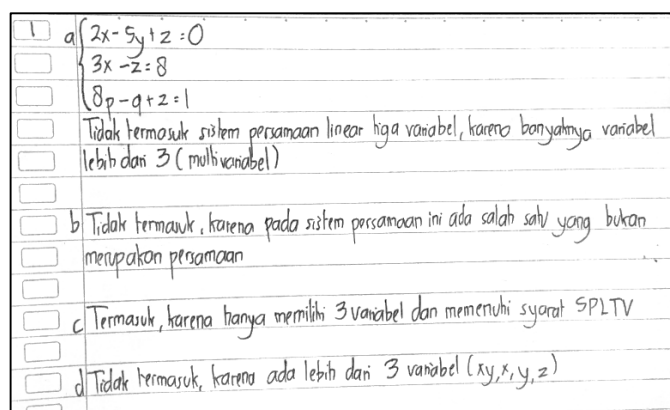 1 a 2x - 5y + z = 0
3x - z = 8
8p - q + z = 1
Tidak termasuk sistem persamaan linear tiga variabel, karena banyaknya variabel
lebih dari 3 (multivariabel)
b Tidak termasuk, karena pada sistem persamaan ini ada salah satu yang bukan
merupakan persamaan
c Termasuk, karena hanya memiliki 3 variabel dan memenuhi syarat SPLTV
d Tidak termasuk, karena ada lebih dari 3 variabel (xy, x, y, z)